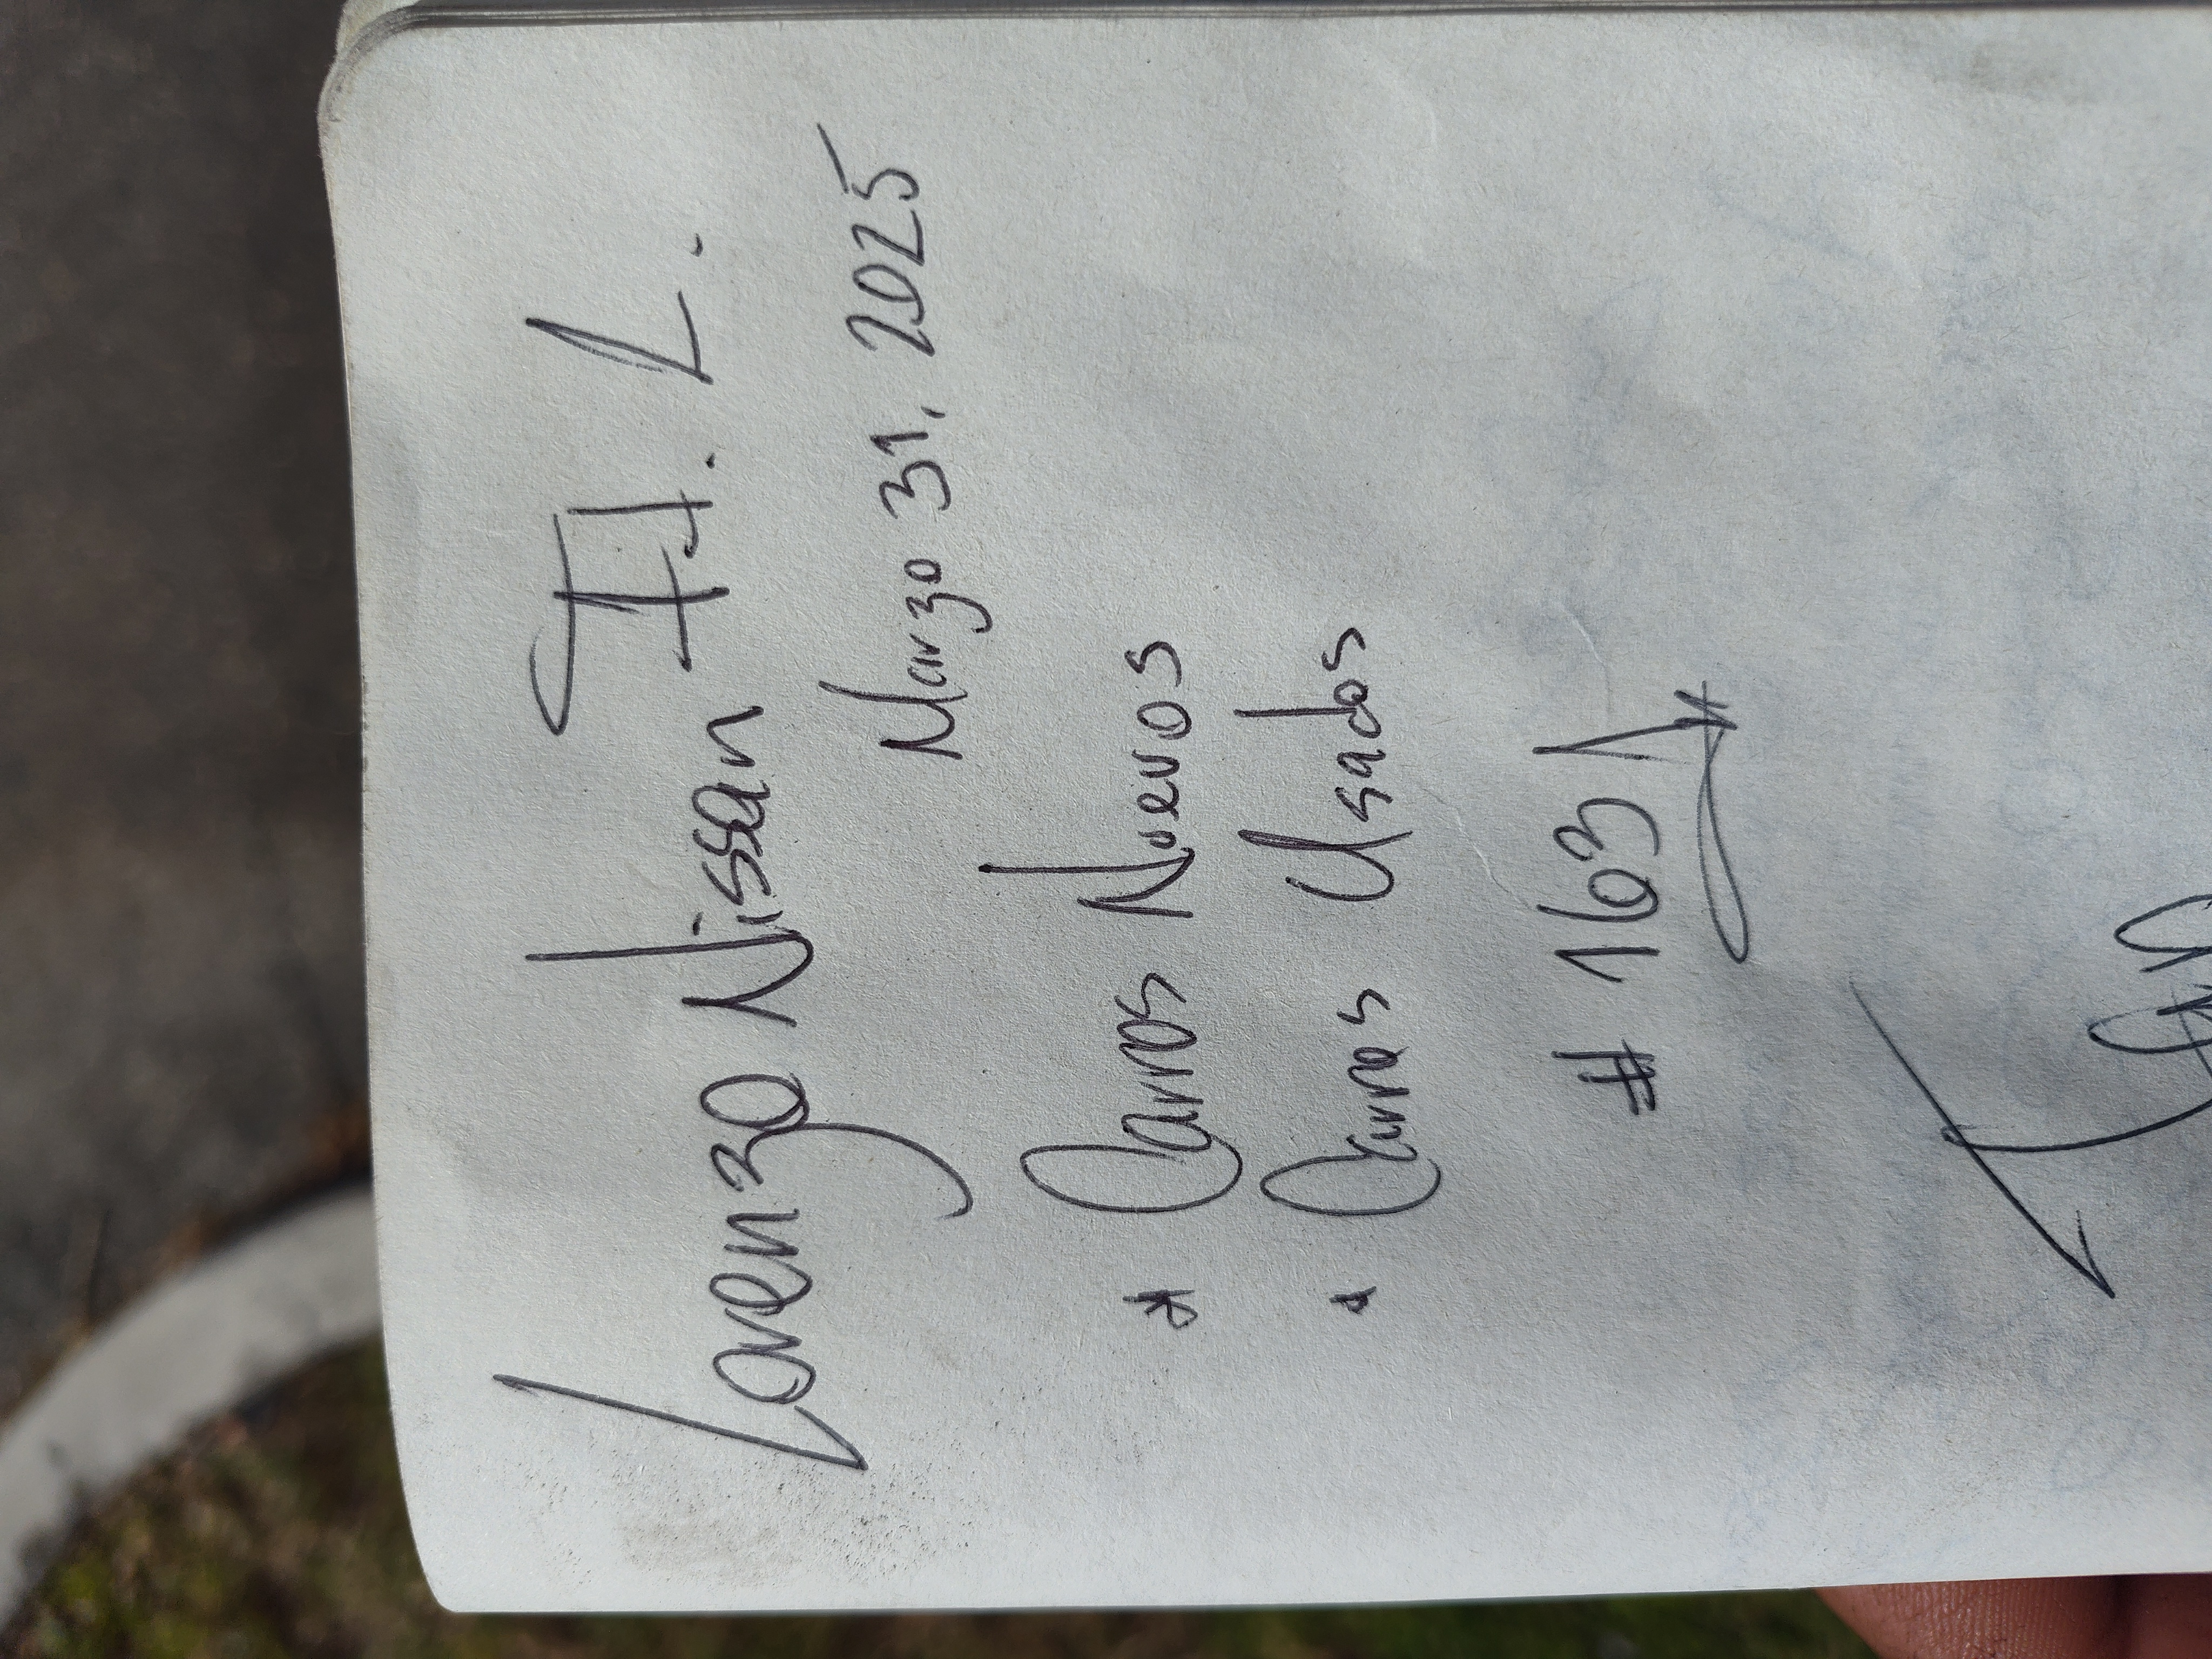 Lorenzo Nissan Ft. L.
Marzo 31, 2025
* Carros Nuevos
* Carros Usados
# 163